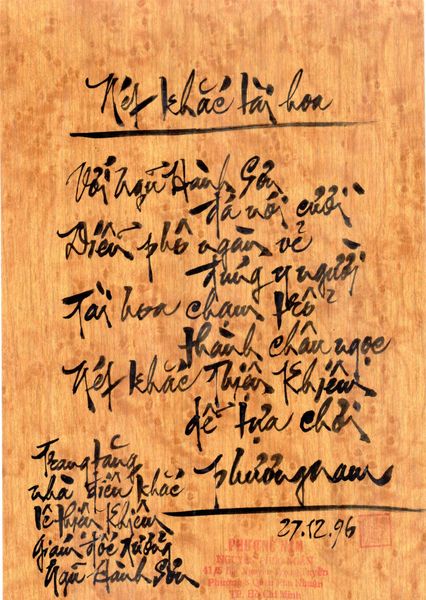 Nét khắc tài hoa
Với Ngũ Hành Sơn
đá nói cười
Diễn phô ngàn vẻ
đúng y người
Tài hoa chạm trổ
thành châu ngọc
Nét khắc Thiện Khiêm
để tựa chơi
Phương Nam
27.12.96
Trang tặng
nhà điêu khắc
Lê Thiện Khiêm
Giám đốc xưởng
Ngũ Hành Sơn
PHƯƠNG NAM
NGUYỄN
Quận Phú Nhuận
TP. Hồ Chí Minh